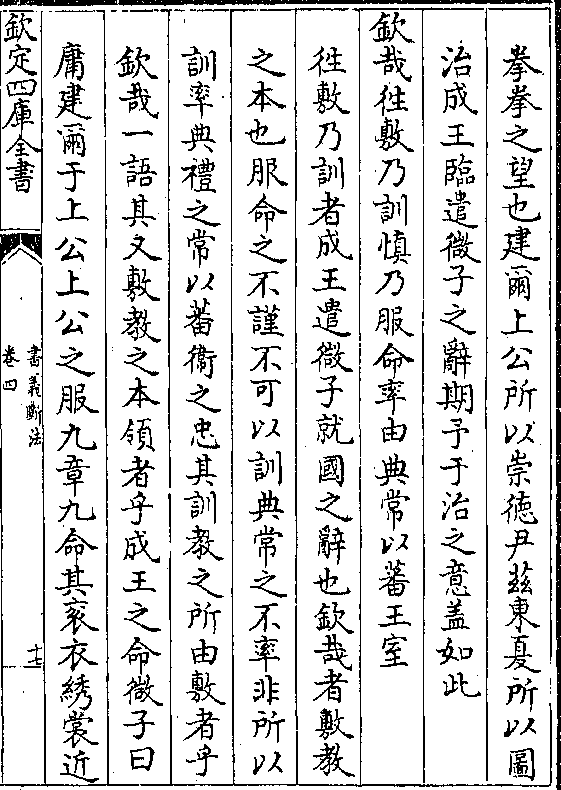 拳拳之望也建爾上公所以崇徳尹兹東夏所以圖
治成王臨遣微子之辭期予于治之意盖如此
欽哉徃敷乃訓慎乃服命率由典常以蕃王室
徃敷乃訓者成王遣微子就國之辭也欽哉者敷教
之本也服命之不謹不可以訓典常之不率非所以
訓率典禮之常以蕃衞之忠其訓教之所由敷者乎
欽哉一語其又敷教之本領者乎成王之命微子曰
庸建爾于上公上公之服九章九命其衮衣綉裳近
欽定四庫全書
書義斷法
卷四
十七